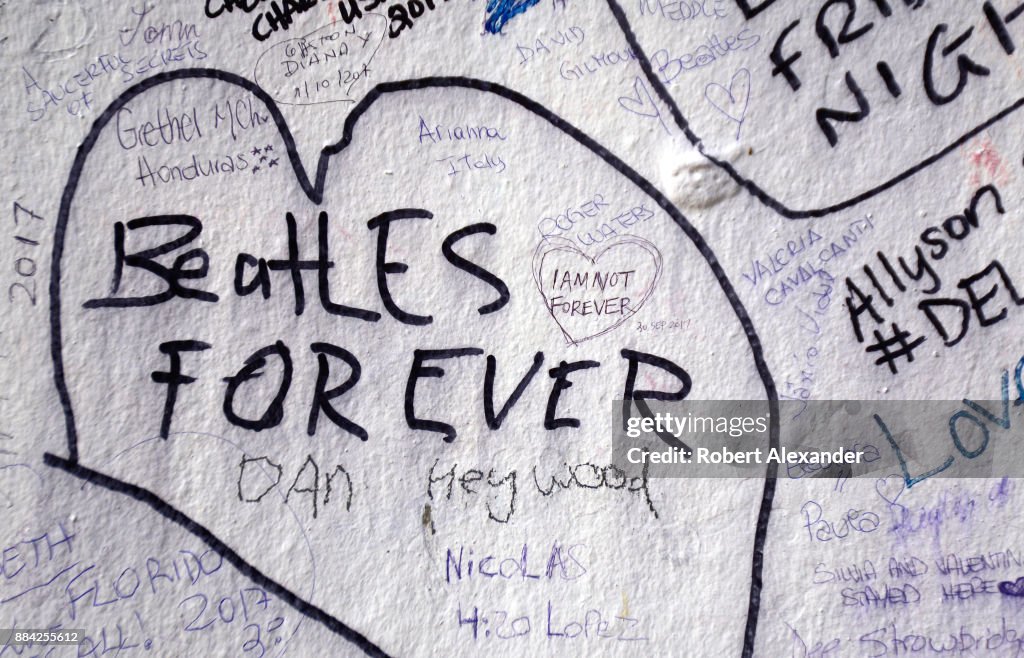 USA
2017
Tomm
DAVID
GILMOUR
MEDDLE
A
SAUCERFUL
OF
SECRETS
GASTON
DIANA Y
1/10/207
Beatles
FRI
NIGH
Grethel
Honduras
Arianna
Italy
2017
BeatLES
FOREVER
ROGER
WATERS
I AM NOT
FOREVER
30 SEP 2017
VALERIA
CAVALCANTI
Allyson
#DEL
LOVE
gettyimages
Credit: Robert Alexander
DAn Heywood
NicoLAS
4:20 Lopez
Paula
SILVIA AND VALENTIN
STAYED HERE
Dee Strowbridge
ETH
FLORIDO
2017
ALL!
884255612